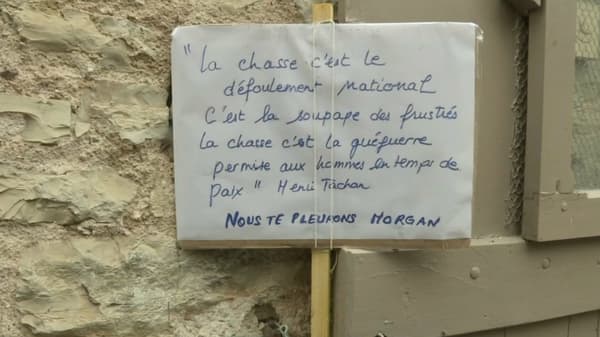 "La chasse c'est le
défoulement national
C'est la soupape des frustrés
la chasse c'est la guéguerre
permise aux hommes en temps de
paix" Henri Tachan
NOUS TE PLEURONS MORGAN